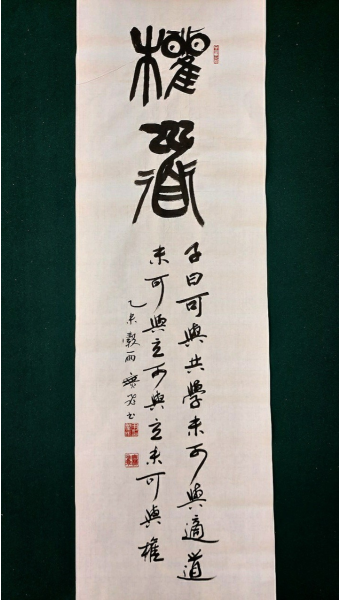 權道
子曰可與共學未可與適道
未可與立可與立未可與權
乙未穀雨書